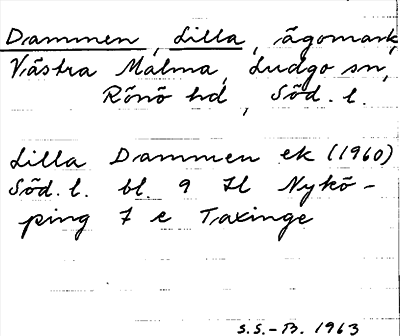 Dammen, Lilla, ägomark,
Västra Malma, Ludgo sn,
Rönö hd, Söd. l.
Lilla Dammen ek (1960)
Söd. l. bl. 9 Il Nykö-
ping 7 e Taxinge
S.S.-B. 1963